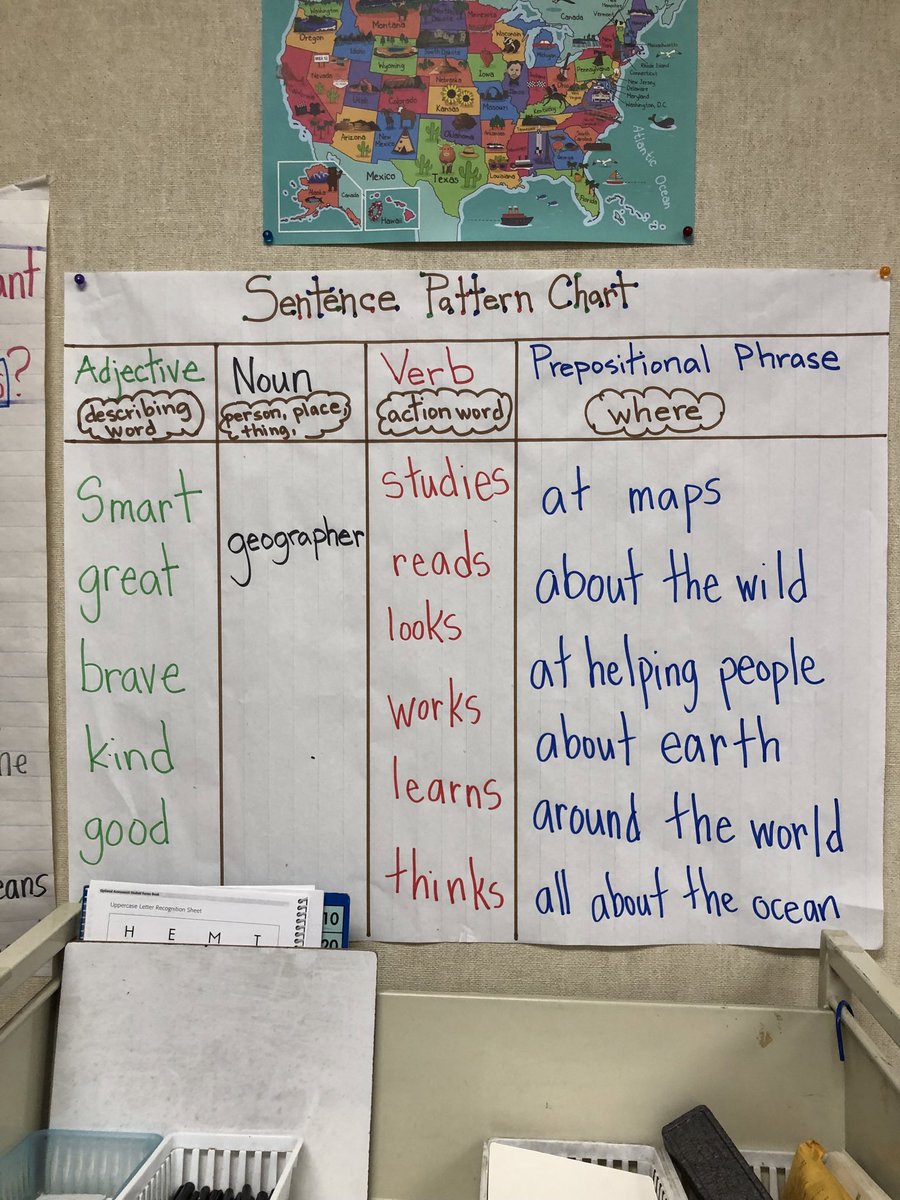 Canada
Washington
Montana
Minnesota
Vermont
Oregon
Idaho
South Dakota
Wisconsin
Michigan
New York
Massachusetts
Wyoming
Iowa
Pennsylvania
Rhode Island
Connecticut
New Jersey
Delaware
Maryland
Washington, D.C.
Nevada
Nebraska
Utah
Colorado
Kansas
Missouri
Kentucky
Arizona
New Mexico
Oklahoma
Arkansas
Georgia
Texas
Louisiana
Florida
Mexico
Atlantic Ocean
Alaska
Canada
Hawaii
ant
?
Sentence Pattern Chart
Adjective
describing
word
Noun
person, place,
thing,
Verb
action word
Prepositional Phrase
where
Smart
great
brave
kind
good
geographer
studies
reads
looks
works
learns
thinks
at maps
about the wild
at helping people
about earth
around the world
all about the ocean
he
eans
Uppercase Letter Recognition Sheet
H E M T
10
20